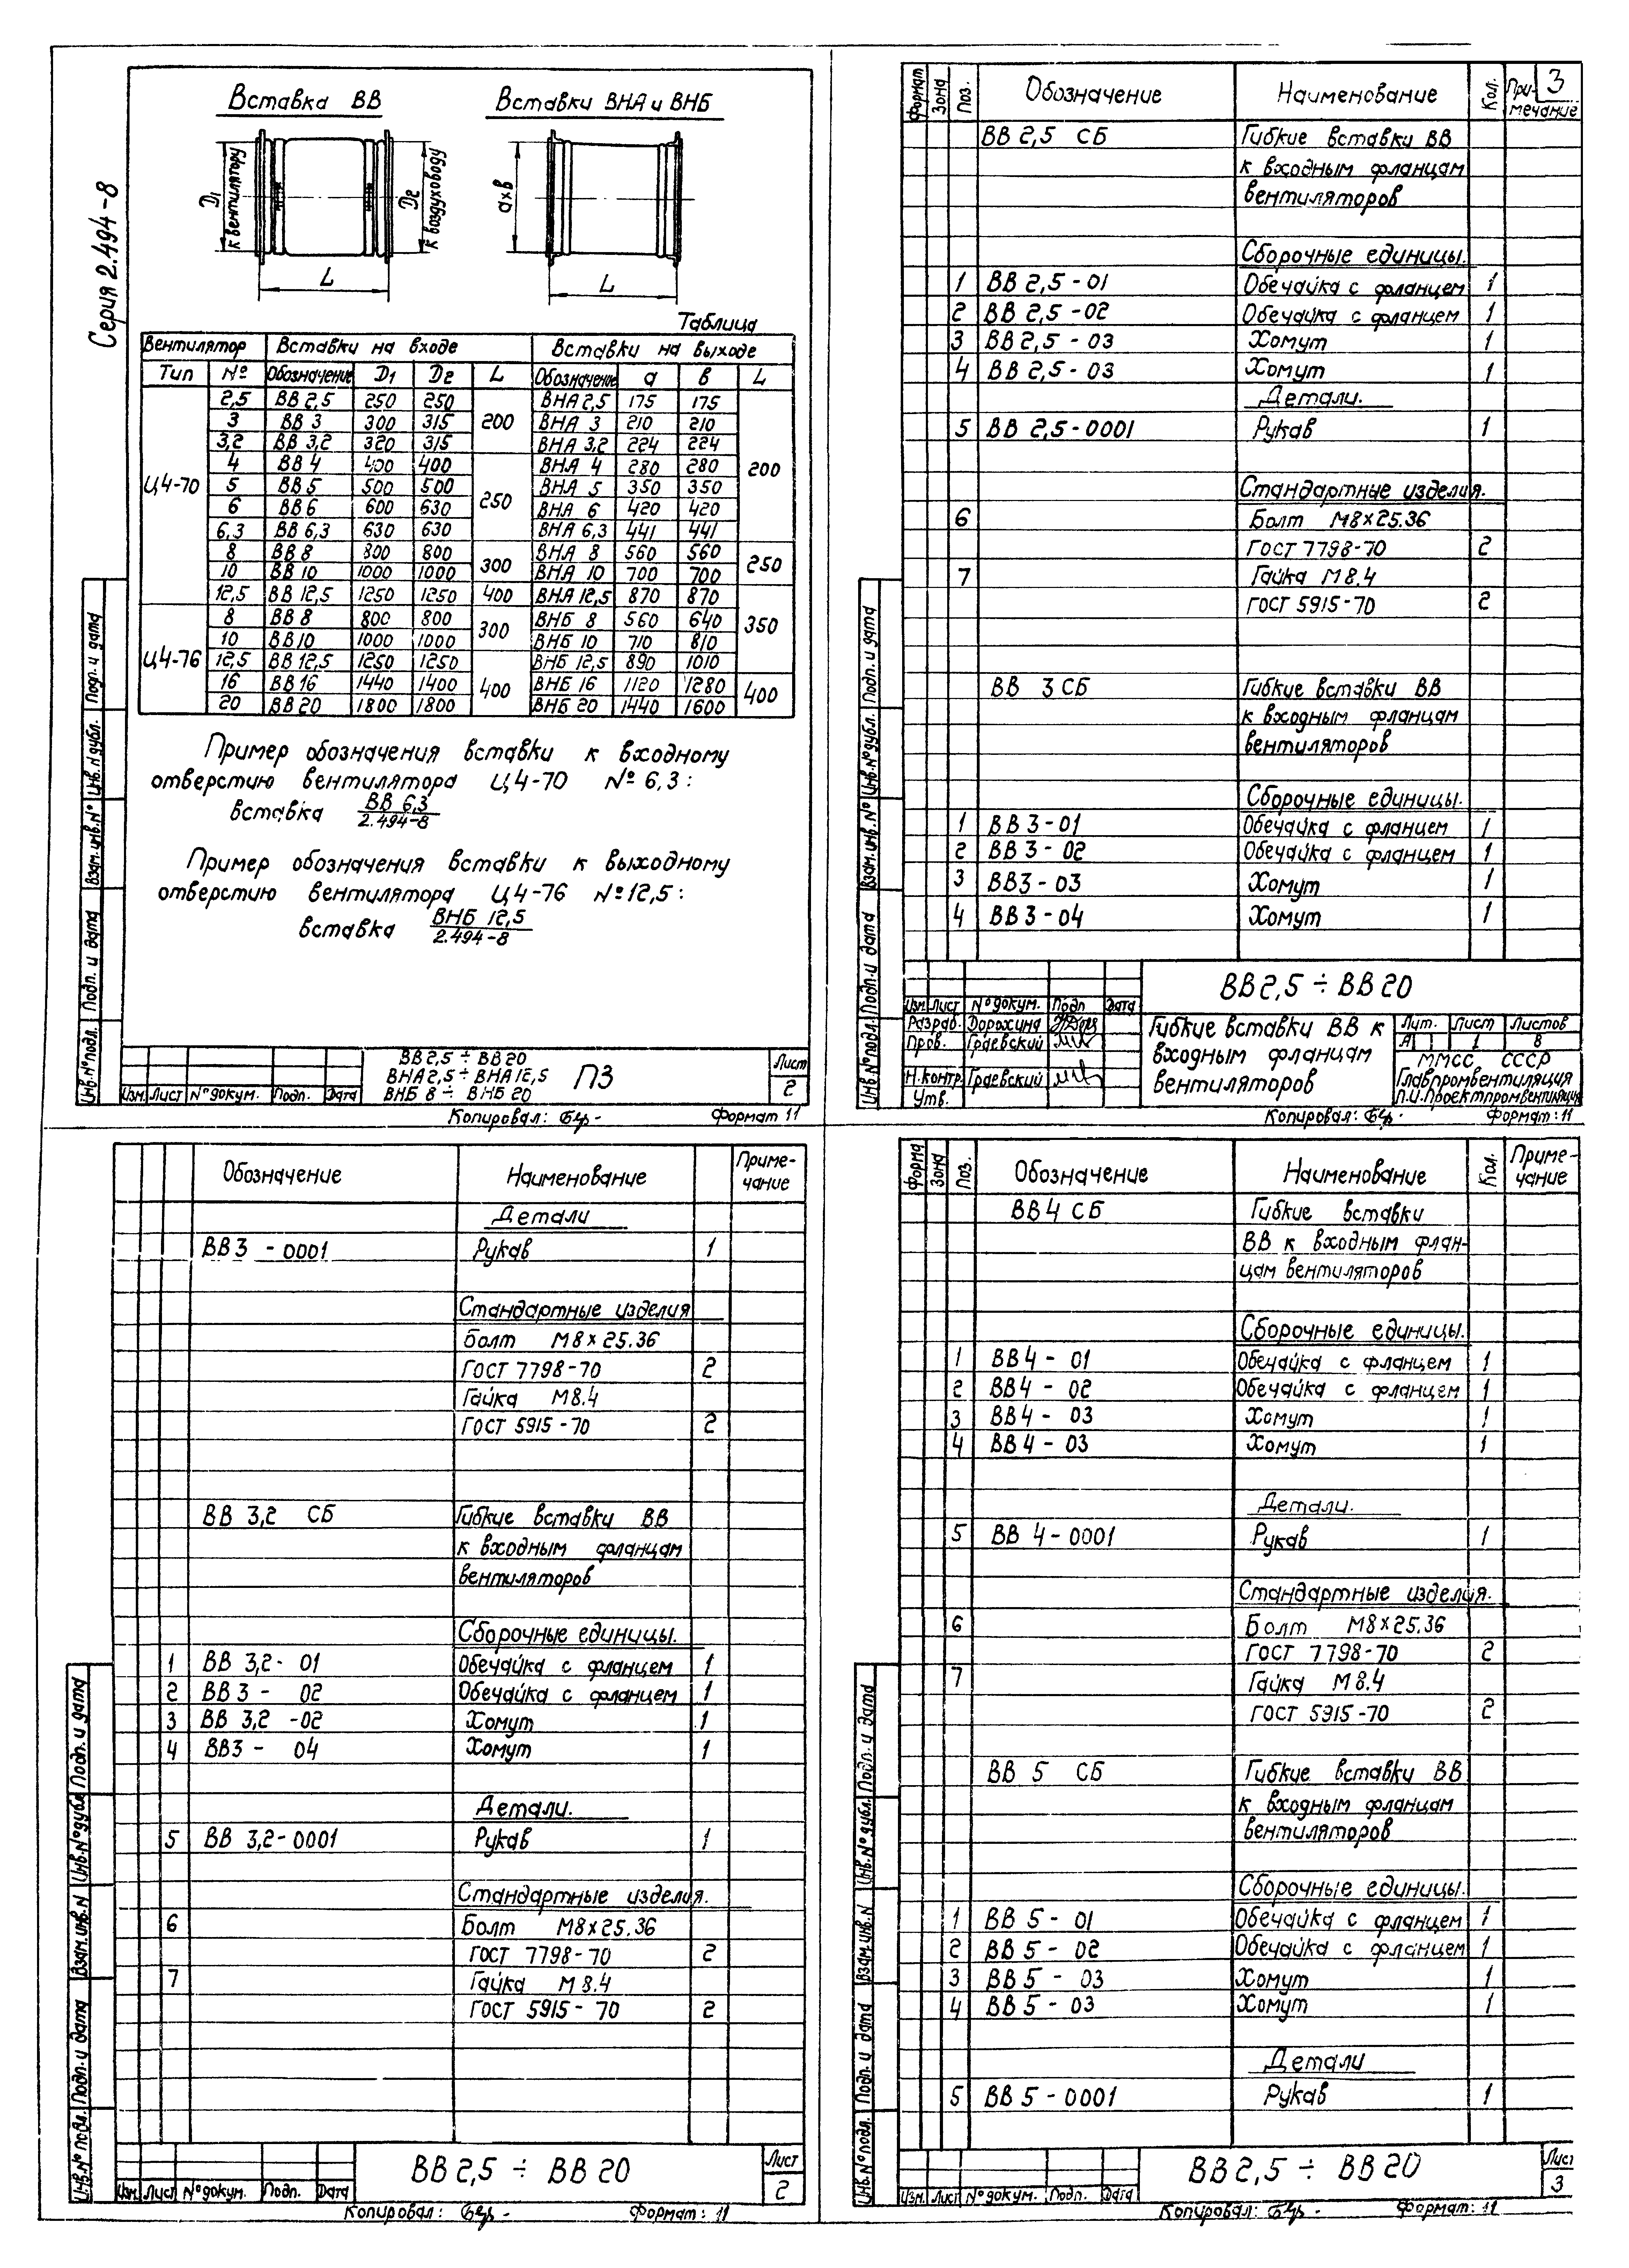 Серия 2.494-8
Вставка ВВ
Вставки ВНА и ВНБ
D1 к вентилятору
D2 к воздуховоду
L
а×в
L
Таблица
Вентилятор Вставки на входе Вставки на выходе
Тип № Обозначение D1 D2 L Обозначение а в L
Ц4-70 2,5 ВВ 2,5 250 250 200 ВНА 2,5 175 175 200
3 ВВ 3 300 315 ВНА 3 210 210
3,2 ВВ 3,2 320 315 ВНА 3,2 224 224
4 ВВ 4 400 400 250 ВНА 4 280 280
5 ВВ 5 500 500 ВНА 5 350 350
6 ВВ 6 600 630 ВНА 6 420 420
6,3 ВВ 6,3 630 630 ВНА 6,3 441 441
8 ВВ 8 800 800 300 ВНА 8 560 560 250
10 ВВ 10 1000 1000 ВНА 10 700 700
12,5 ВВ 12,5 1250 1250 400 ВНА 12,5 870 870 350
Ц4-76 8 ВВ 8 800 800 300 ВНБ 8 560 640
10 ВВ10 1000 1000 ВНБ 10 710 810
12,5 ВВ 12,5 1250 1250 400 ВНБ 12,5 890 1010
16 ВВ 16 1440 1400 ВНБ 16 1120 1280 400
20 ВВ 20 1800 1800 ВНБ 20 1440 1600
Пример обозначения вставки к входному
отверстию вентилятора Ц4-70 № 6,3:
вставка ВВ 6,3
2.494-8
Пример обозначения вставки к выходному
отверстию вентилятора Ц4-76 №12,5:
вставка ВНБ 12,5
2.494-8
Инв.№подл. Подп. и дата Взам.инв.№ Инв.№дубл. Подп. и дата
ВВ 2,5 ÷ ВВ 20
ВНА 2,5 ÷ ВНА 12,5
ВНБ 8 ÷ ВНБ 20
ПЗ
Лист
2
Изм. Лист №докум. Подп. Дата
Копировал: Формат 11
Формат Зона Поз. Обозначение Наименование Кол. Примечание
3
ВВ 2,5 СБ Гибкие вставки ВВ
к входным фланцам
вентиляторов
Сборочные единицы.
1 ВВ 2,5-01 Обечайка с фланцем 1
2 ВВ 2,5-02 Обечайка с фланцем 1
3 ВВ 2,5-03 Хомут 1
4 ВВ 2,5-03 Хомут 1
Детали.
5 ВВ 2,5-0001 Рукав 1
Стандартные изделия.
6 Болт М8×25.36
ГОСТ 7798-70 2
7 Гайка М8.4
ГОСТ 5915-70 2
ВВ 3 СБ Гибкие вставки ВВ
к входным фланцам
вентиляторов
Сборочные единицы.
1 ВВ 3-01 Обечайка с фланцем 1
2 ВВ 3-02 Обечайка с фланцем 1
3 ВВ3-03 Хомут 1
4 ВВ 3-04 Хомут 1
Инв.№подл. Подп. и дата Взам.инв.№ Инв.№дубл. Подп. и дата
ВВ2,5 ÷ ВВ 20
Изм. Лист №докум. Подп Дата
Разраб. Дорохина
Пров. Граевский
Н.контр. Граевский
Утв.
Гибкие вставки ВВ к
входным фланцам
вентиляторов
Лит. Лист Листов
А 1 8
ММСС СССР
Главпромвентиляция
П.И.Проектпромвентиляция
Копировал: Формат: 11
Обозначение Наименование Примечание
Детали
ВВ3 -0001 Рукав 1
Стандартные изделия
болт М8×25.36
ГОСТ 7798-70 2
Гайка М8.4
ГОСТ 5915-70 2
ВВ 3,2 СБ Гибкие вставки ВВ
к входным фланцам
вентиляторов
Сборочные единицы.
1 ВВ 3,2- 01 Обечайка с фланцем 1
2 ВВ 3 - 02 Обечайка с фланцем 1
3 ВВ 3,2 -02 Хомут 1
4 ВВ3 - 04 Хомут 1
Детали.
5 ВВ 3,2-0001 Рукав 1
Стандартные изделия.
6 Болт М8×25.36
ГОСТ 7798-70 2
7 Гайка М8.4
ГОСТ 5915-70 2
Инв.№ подл. Подп. и дата Взам.инв.N Инв.№дубл Подп. и дата
ВВ 2,5 ÷ ВВ 20
Лист
2
Изм. Лист №докум. Подп. Дата
Копировал: Формат: 11
Форма Зона Поз. Обозначение Наименование Кол. Примечание
ВВ4 СБ Гибкие вставки
ВВ к входным флан-
цам вентиляторов
Сборочные единицы.
1 ВВ4 - 01 Обечайка с фланцем 1
2 ВВ4 - 02 Обечайка с фланцем 1
3 ВВ4 - 03 Хомут 1
4 ВВ4 - 03 Хомут 1
Детали.
5 ВВ 4-0001 Рукав 1
Стандартные изделия.
6 Болт М8×25.36
ГОСТ 7798-70 2
7 Гайка М8.4
ГОСТ 5915-70 2
ВВ 5 СБ Гибкие вставки ВВ
к входным фланцам
вентиляторов
Сборочные единицы.
1 ВВ 5 - 01 Обечайка с фланцем 1
2 ВВ 5 - 02 Обечайка с фланцем 1
3 ВВ 5 - 03 Хомут 1
4 ВВ 5 - 03 Хомут 1
Детали
5 ВВ 5-0001 Рукав 1
Инв.№подл. Подп. и дата Взам.инв.N Инв.№дубл. Подп. и дата
ВВ 2,5 ÷ ВВ 20
Лист
3
Изм. Лист №докум. Подп. Дата
Копировал: Формат: 11